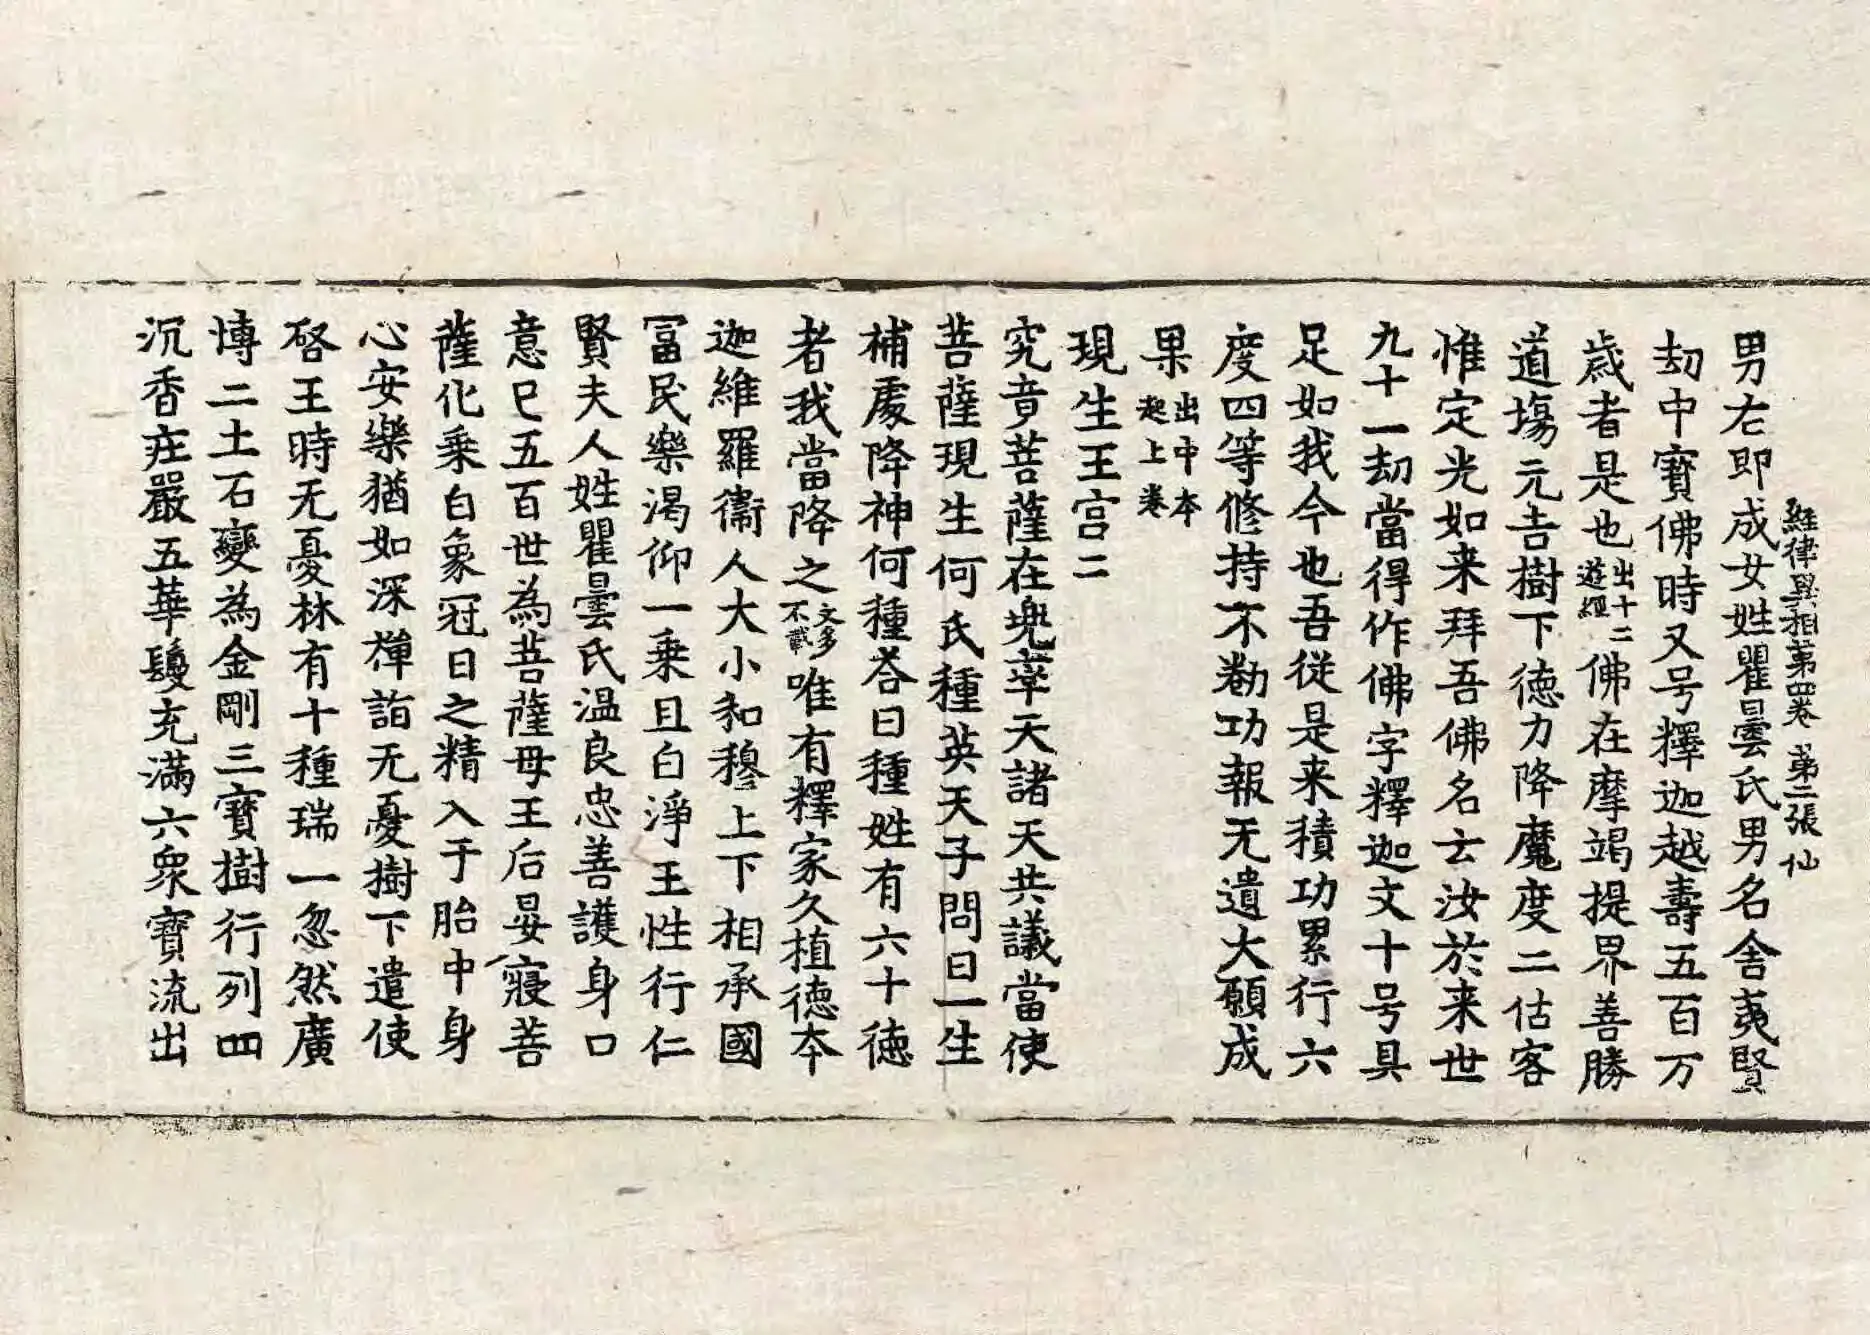 經律異相第四卷　第二張　仙
男左即成女姓瞿曇氏男名舍夷賢
劫中寶佛時又号釋迦越壽五百万
歲者是也出十二遊經佛在摩竭提界善勝
道場元吉樹下德力降魔度二估客
惟定光如来拜吾佛名云汝於来世
九十一劫當得作佛字釋迦文十号具
足如我今也吾從是来積功累行六
度四等修持不勌功報无遺大願成
果出中本起上卷
現生王宫二
究竟菩薩在兜率天諸天共議當使
菩薩現生何氏種英天子問曰一生
補處降神何種荅曰種姓有六十德
者我當降之文多不載唯有釋家久植德本
迦維羅衞人大小和穆上下相承國
冨民樂渇仰一乗且白淨王性行仁
賢夫人姓瞿曇氏温良忠善護身口
意已五百世為菩薩母王后晏寢菩
薩化乗白象冠日之精入于胎中身
心安樂猶如深禪詣无憂樹下遣使
啓王時无憂林有十種瑞一忽然廣
博二土石變為金剛三寶樹行列四
沉香庄嚴五華鬘充滿六衆寶流出